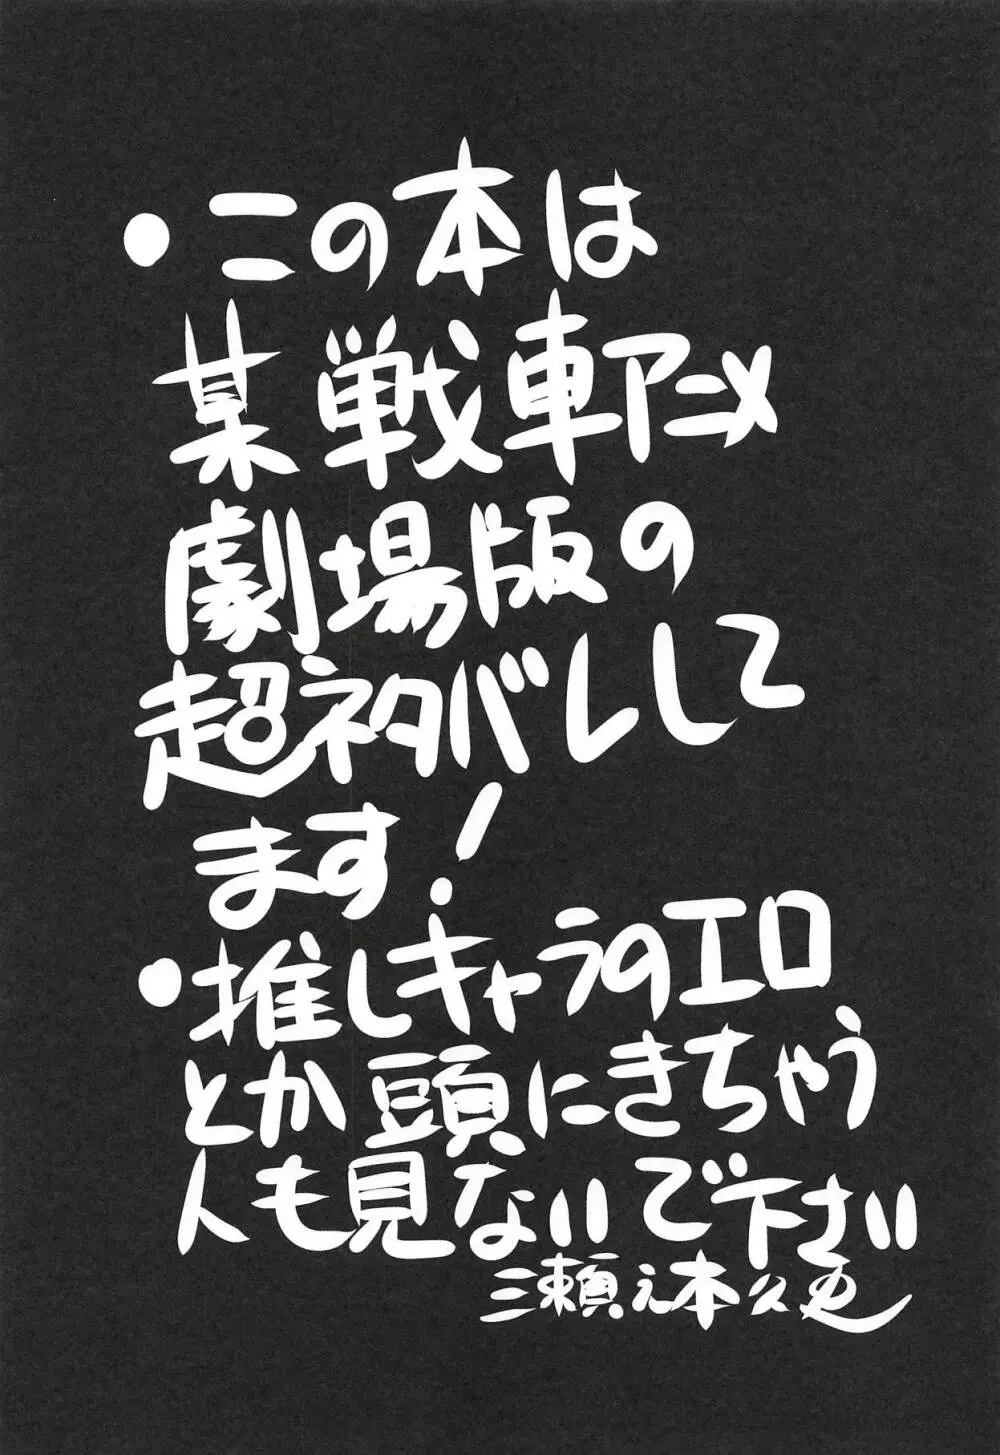 ・この本は
某戦車アニメ
劇場版の
超ネタバレして
ます!
・推しキャラのエロ
とか頭にきちゃう
人も見ないで下さい
三瀬元本久也